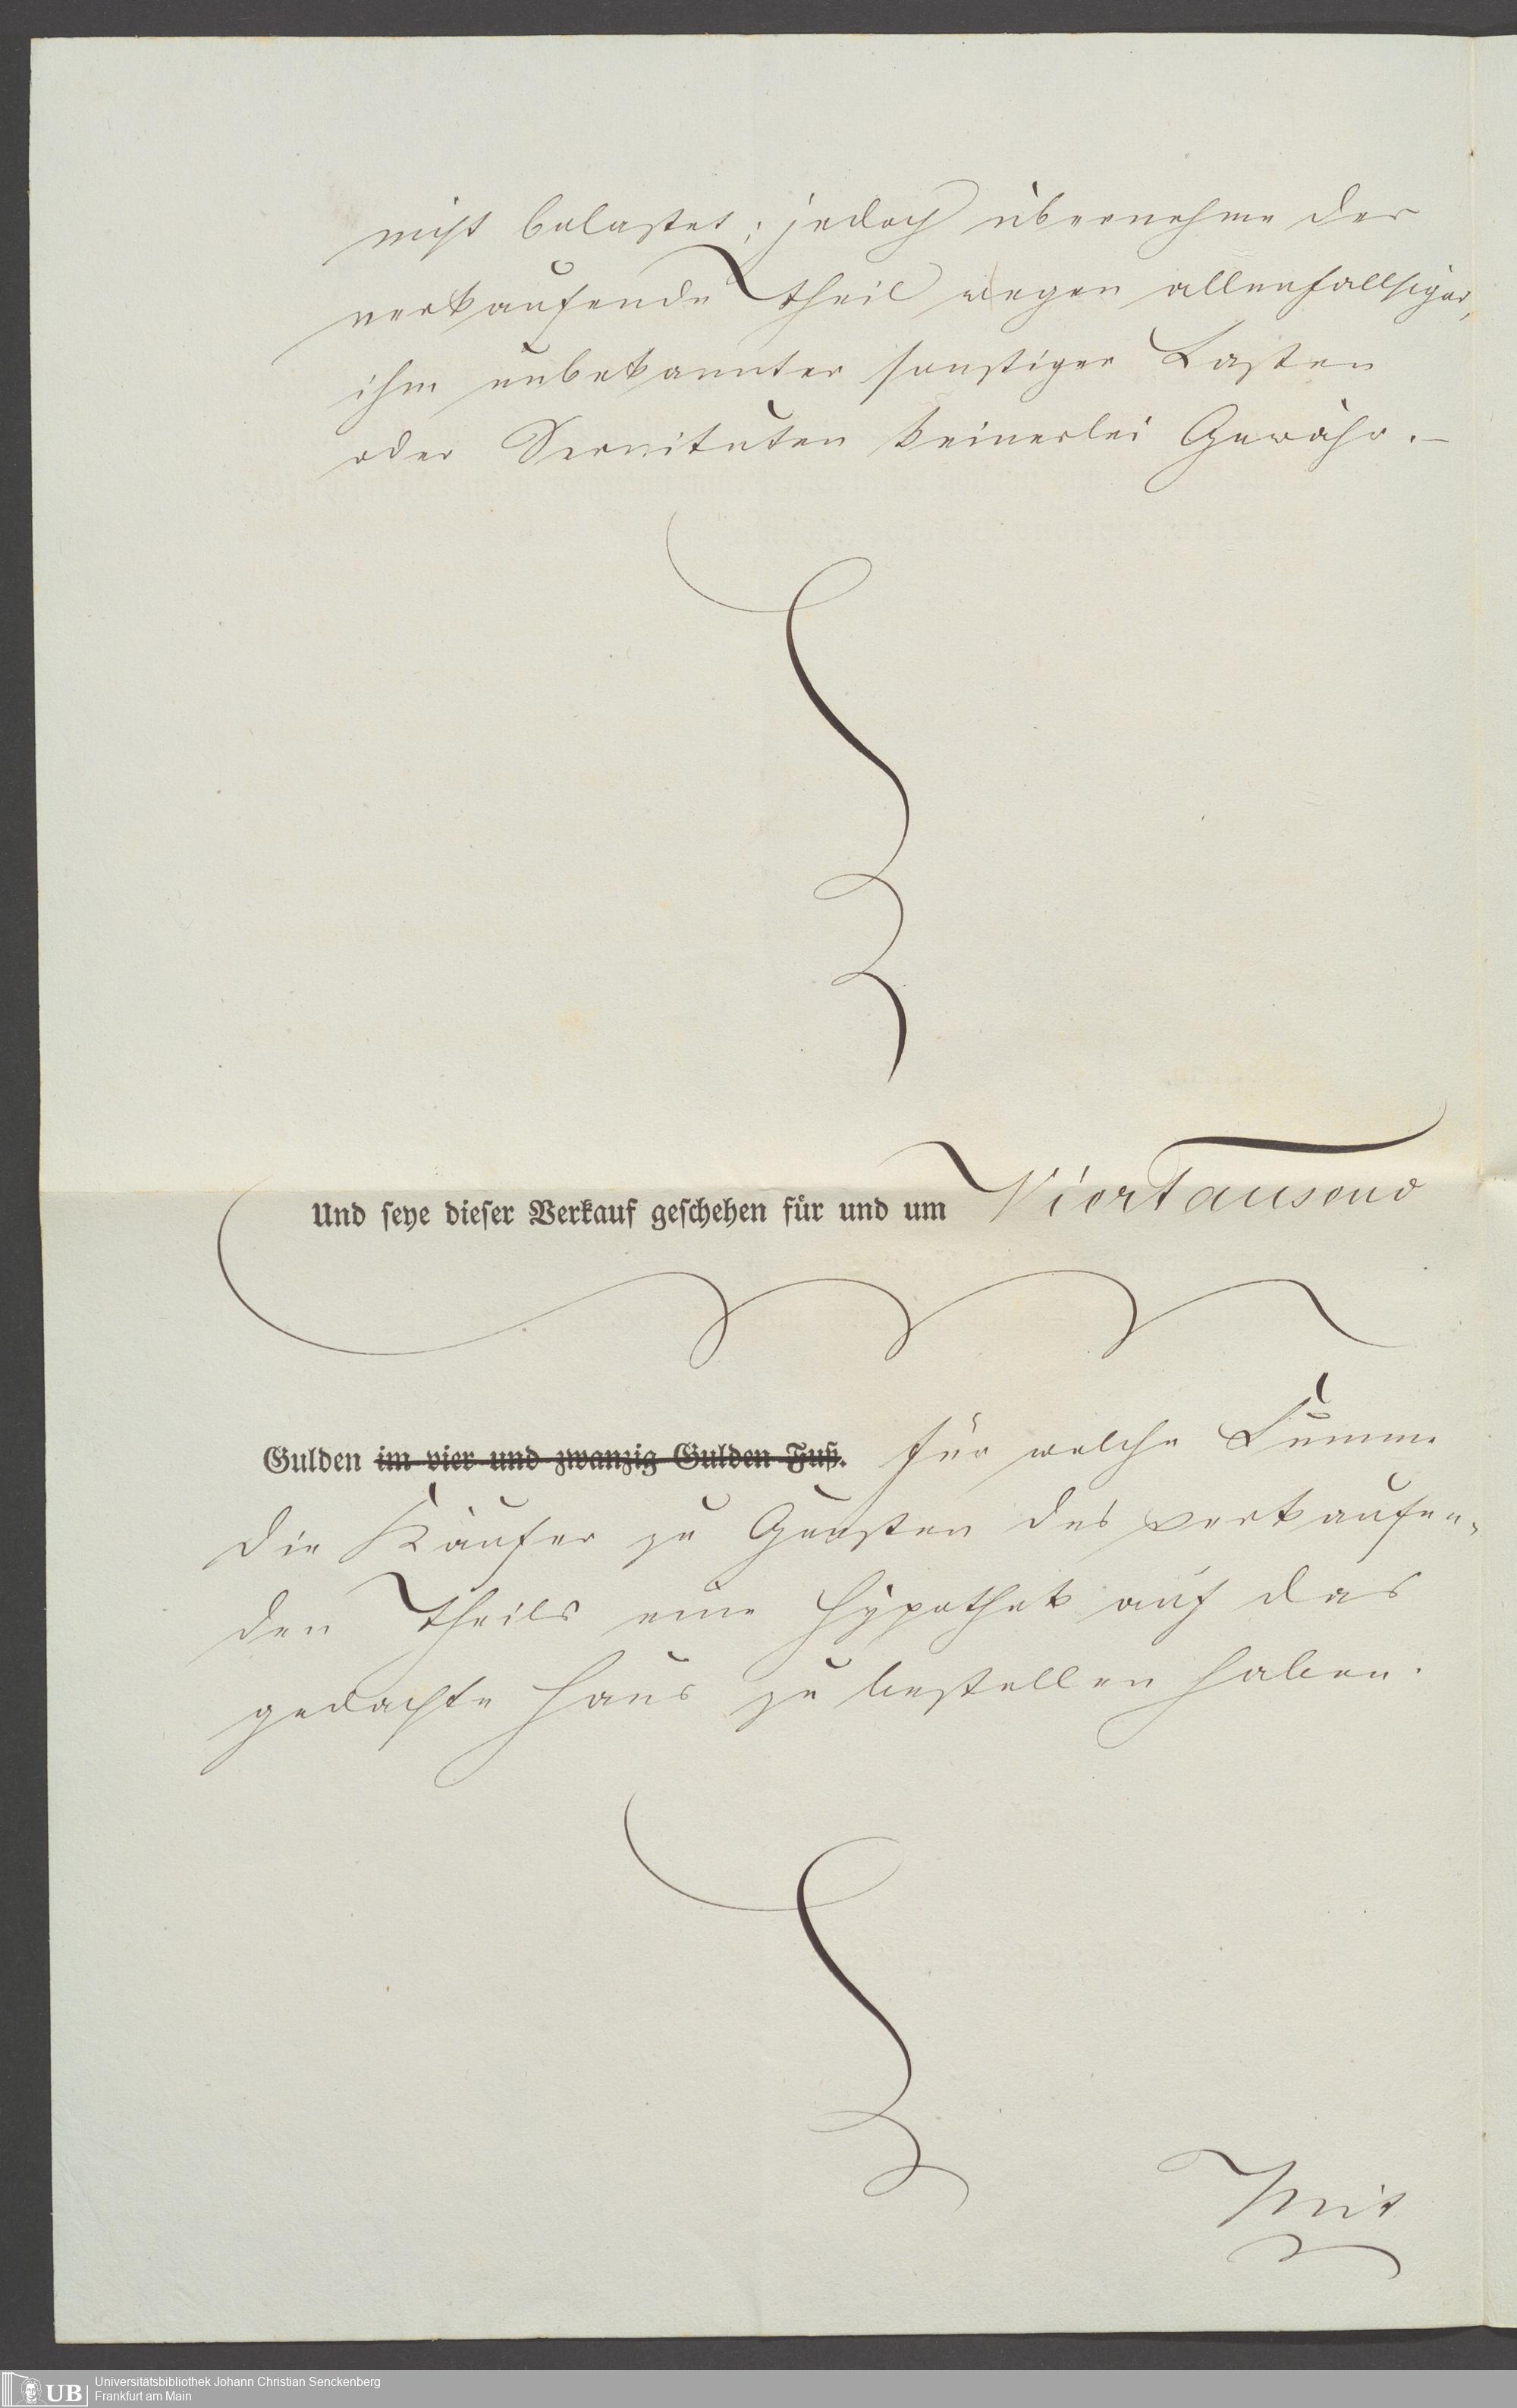 nicht belastet; jedoch übernehme der
verkaufende Theil wegen allenfallsiger,
ihm unbekannter sonstiger Lasten
oder Servituten keinerlei Gewähr.–
Und seye dieser Verkauf geschehen für und um Viertausend
Gulden im vier und zwanzig Gulden Fuß. für welche Summe
die Käufer zu Gunsten des verkaufen-
den Theils eine Hypothek auf das
gedachte Haus zu bestellen haben.
Mit
UB Universitätsbibliothek Johann Christian Senckenberg
Frankfurt am Main